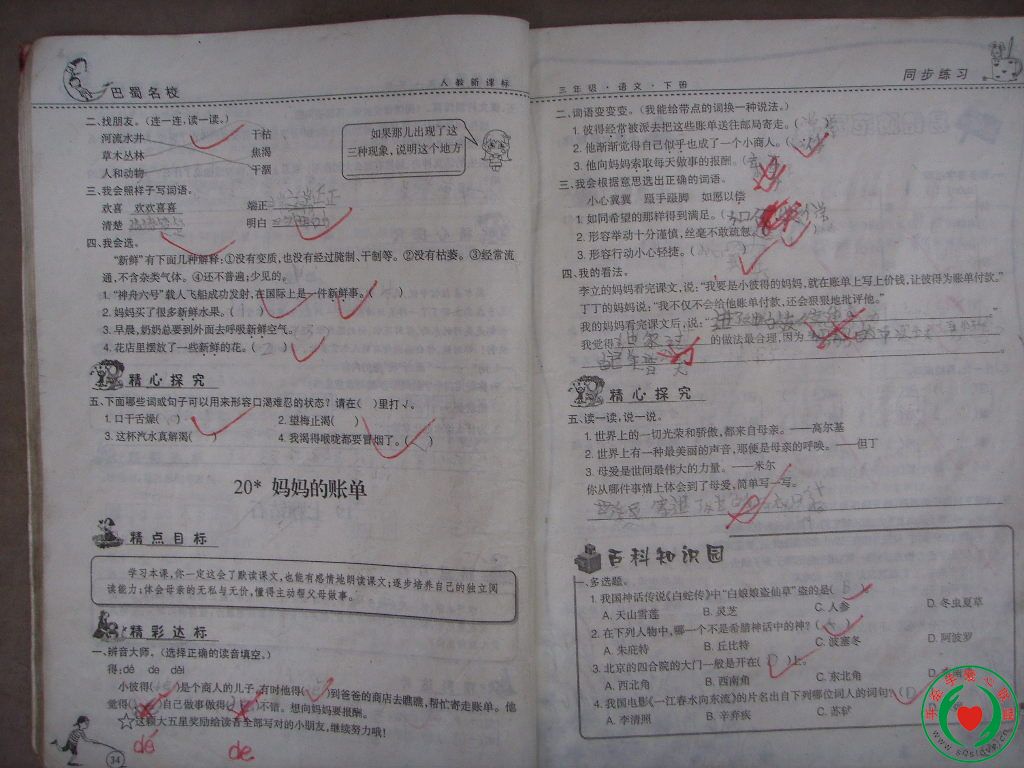 巴蜀名校
人教新课标
二、找朋友。（连一连，读一读。）
河流水井 干枯
草木丛林 焦渴
人和动物 干涸
如果那儿出现了这
三种现象，说明这个地方
三、我会照样子写词语。
欢喜 欢欢喜喜 端正
清楚 明白
四、我会选。
“新鲜”有下面几种解释：①没有变质，也没有经过腌制、干制等。②没有枯萎。③经常流
通，不含杂类气体。④还不普遍；少见的。
1. “神舟六号”载人飞船成功发射，在国际上是一件新鲜事。（ ）
2. 妈妈买了很多新鲜水果。（ ）
3. 早晨，奶奶总要到外面去呼吸新鲜空气。
4. 花店里摆放了一些新鲜的花。（ ）
精心探究
五、下面哪些词或句子可以用来形容口渴难忍的状态？请在（ ）里打√。
1. 口干舌燥（ ） 2. 望梅止渴（ ）
3. 这杯汽水真解渴（ ） 4. 我渴得喉咙都要冒烟了。（ ）
20* 妈妈的账单
精点目标
学习本课，你一定这会了默读课文，也能有感情地朗读课文；逐步培养自己的独立阅
读能力；体会母亲的无私与无价，懂得主动帮父母做事。
精彩达标
一、辨音大师。（选择正确的读音填空。）
得：dé de děi
小彼得（ ）是个商人的儿子，有时他得（ ）到爸爸的商店去瞧瞧，帮忙寄走账单。他
觉得（ ）自己做事做得（ ）不错。想向妈妈要报酬。
☆这颗大五星奖励给读音全部写对的小朋友，继续努力哦！
dé de
34
三年级·语文·下册
同步练习
二、词语变变变。（我能给带点的词换一种说法。）
1. 彼得经常被派去把这些账单送往邮局寄走。（
2. 他渐渐觉得自己似乎也成了一个小商人。（
3. 他向妈妈索取每天做事的报酬。（
三、我会根据意思选出正确的词语。
小心翼翼 蹑手蹑脚 如愿以偿
1. 如同希望的那样得到满足。（
2. 形容举动十分谨慎，丝毫不敢疏忽。（
3. 形容行动小心轻捷。（ ）
四、我的看法。
李立的妈妈看完课文，说：“我要是小彼得的妈妈，就在账单上写上价钱，让彼得为账单付款。”
丁丁的妈妈说：“我不仅不会给他账单付款，还会狠狠地批评他。”
我的妈妈看完课文后，说：“
我觉得 的做法最合理，因为
精心探究
五、读一读，说一说。
1. 世界上的一切光荣和骄傲，都来自母亲。——高尔基
2. 世界上有一种最美丽的声音，那便是母亲的呼唤。——但丁
3. 母爱是世间最伟大的力量。——米尔
你从哪件事情上体会到了母爱，简单写一写。
百科知识园
一、多选题。
1. 我国神话传说《白蛇传》中“白娘娘盗仙草”盗的是（ B
A. 天山雪莲 B. 灵芝 C. 人参 D. 冬虫夏草
2. 在下列人物中，哪一个不是希腊神话中的神？（
A. 朱庇特 B. 丘比特 C. 波塞冬 D. 阿波罗
3. 北京的四合院的大门一般是开在（ D ）上。
A. 西北角 B. 西南角 C. 东北角 D.
4. 我国电影《一江春水向东流》的片名出自下列哪位词人的词句（ D
A. 李清照 B. 辛弃疾 C. 苏轼